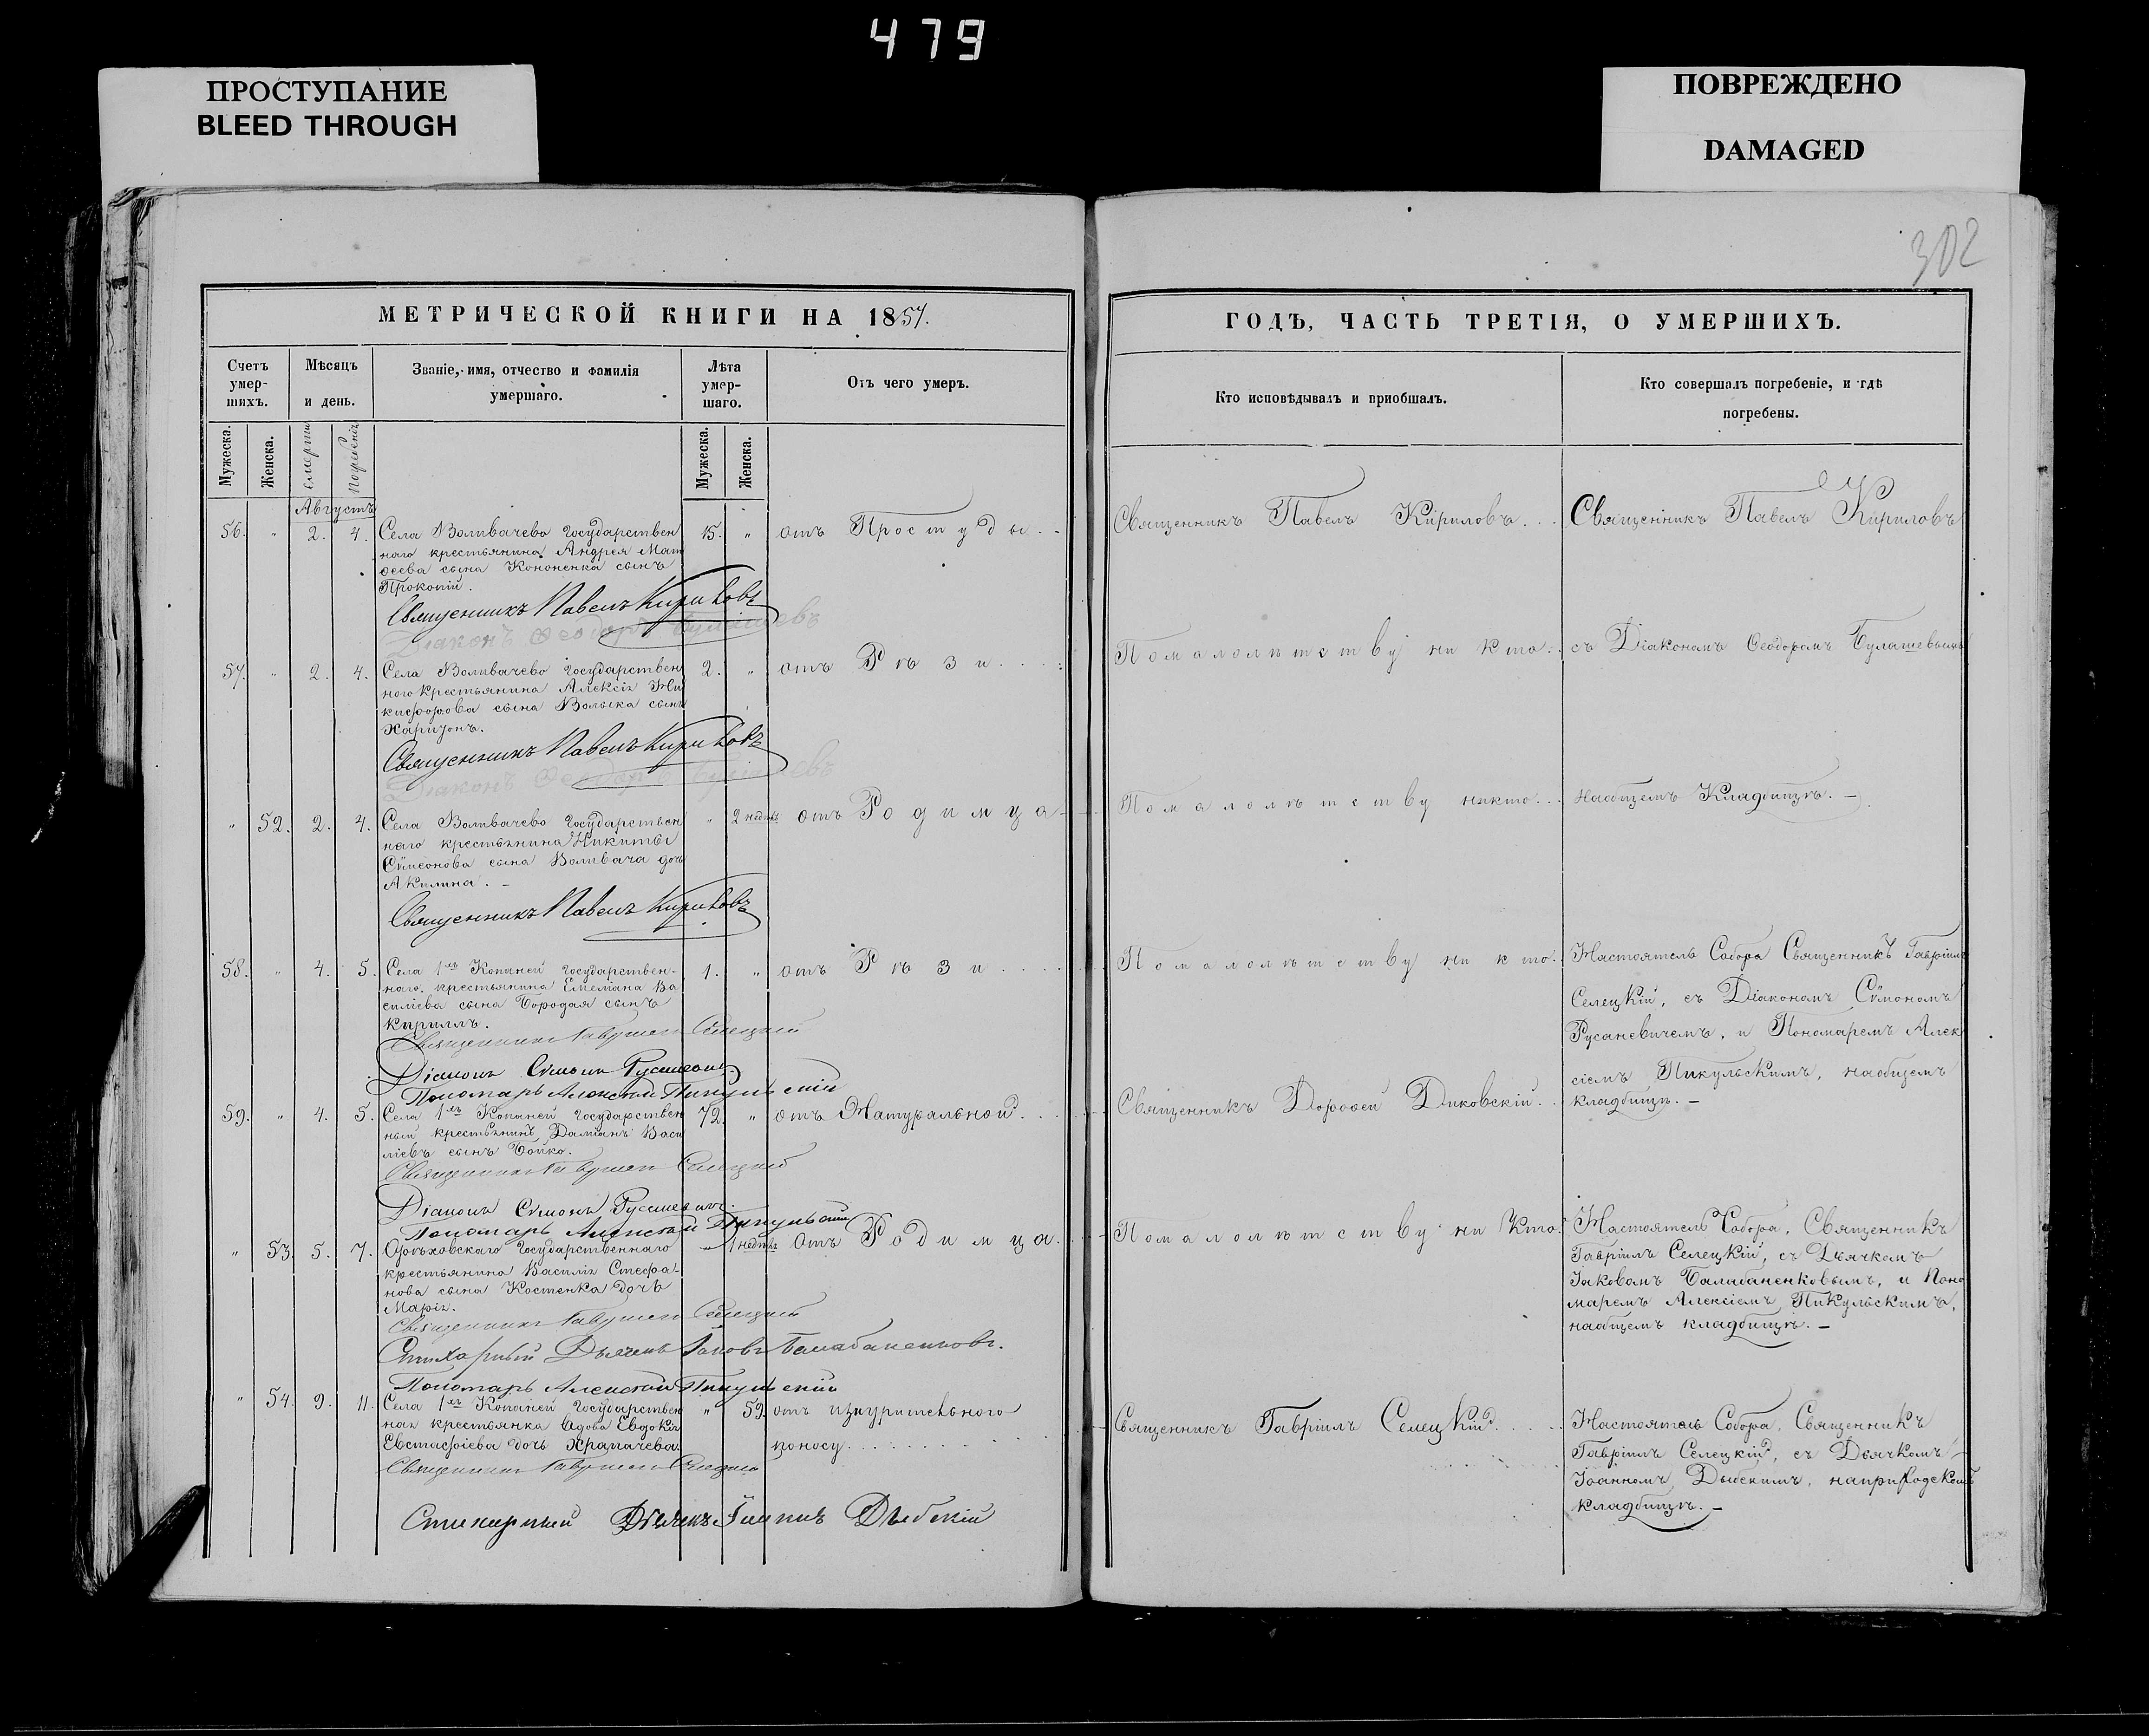 479
ПРОСТУПАНИЕ
BLEED THROUGH
ПОВРЕЖДЕНО
DAMAGED
302
МЕТРИЧЕСКОЙ КНИГИ НА 1857.
Счетъ умер-шихъ.
Мѣсяцъ и день.
Званіе, имя, отчество и фамилія умершаго.
Лѣта умер-шаго.
Отъ чего умеръ.
Мужеска.
Женска.
смерти
погребенія
Мужеска.
Женска.
Августъ
56. " 2. 4. Села Воливачево Государствен 15. " отъ Простуды . .
наго крестьянина Андрея Мат
ѳеева сына Кононенка сынъ
Прокопій.
Священникъ Павелъ Кириловъ
Діаконъ Ѳеодоръ Булашевъ
57. " 2. 4. Села Воливачево Государствен 2. " отъ Рѣзи . . . .
ного крестьянина Алексія Ни
кифорова сына Волыка сынъ
Харитонъ.
Священникъ Павелъ Кириловъ
Діаконъ Ѳеодоръ Булашевъ
" 52. 2. 4. Села Воливачево Государствен " 2 недѣль отъ Родимца -
наго крестьянина Никиты
Сѵмеонова сына Воливача дочь
Акилина. -
Священникъ Павелъ Кириловъ
58. " 4. 5. Села 1хъ Копаней Государствен- 1. " отъ Рѣзи . . . .
наго крестьянина Емеліана Ва
силіева сына Бородая сынъ
Кириллъ.
Священникъ Гавріилъ Селецкій
Діаконъ Сѵмонъ Русаневичъ
Пономарь Алексѣй Пикульскій
59. " 4. 5. Села 1хъ Копаней Государствен 72. " отъ Натуральной . . .
ный крестьянинъ Даміанъ Васи
ліевъ сынъ Бойко.
Священникъ Гавріилъ Селецкій
Діаконъ Сѵмонъ Русаневичъ.
Пономарь Алексѣй Пикульскій
" 53. 5. 7. Орѣховскаго Государственнаго " 1 недѣль отъ Родимца .
крестьянина Василія Стефа-
нова сына Костенка дочь
Марія.
Священникъ Гавріилъ Селецкій
Стихарный Дьячекъ Іаковъ Балабаненковъ.
Пономарь Алексѣй Пикульскій
" 54. 9. 11. Села 1хъ Копаней Государствен " 59. отъ изнурительнаго
ная крестьянка вдова Евдокія
Евстафіева дочь Храпачева. поносу . . . . .
Священникъ Гавріилъ Селецкій
Стихарный Дьячекъ Іоаннъ Дыбскій
ГОДЪ, ЧАСТЬ ТРЕТІЯ, О УМЕРШИХЪ.
Кто исповѣдывалъ и приобщалъ.
Кто совершалъ погребеніе, и гдѣ погребены.
Священникъ Павелъ Кириловъ. . .
Священникъ Павелъ Кириловъ
По малолѣтству ни кто . .
съ Діакономъ Ѳеодоромъ Булашевымъ
По малолѣтству никто . . .
на общемъ Кладбищѣ. -
По малолѣтству ни кто .
Настоятель Собора Священникъ Гавріилъ
Селецкій, съ Діакономъ Сѵмономъ
Русаневичемъ, и Пономаремъ Алек
сіемъ Пикульскимъ, на общемъ
кладбищѣ. -
Священникъ Дороѳей Диковскій . .
По малолѣтству ни кто .
Настоятель Собора, Священникъ
Гавріилъ Селецкій, съ Дьячкомъ
Іаковомъ Балабаненковымъ, и Поно
маремъ Алексіемъ Пикульскимъ,
на общемъ кладбищѣ. -
Священникъ Гавріилъ Селецкій . . . .
Настоятель Собора, Священникъ
Гавріилъ Селецкій, съ Дьячкомъ
Іоанномъ Дыбскимъ, на приходскомъ
кладбищѣ. -